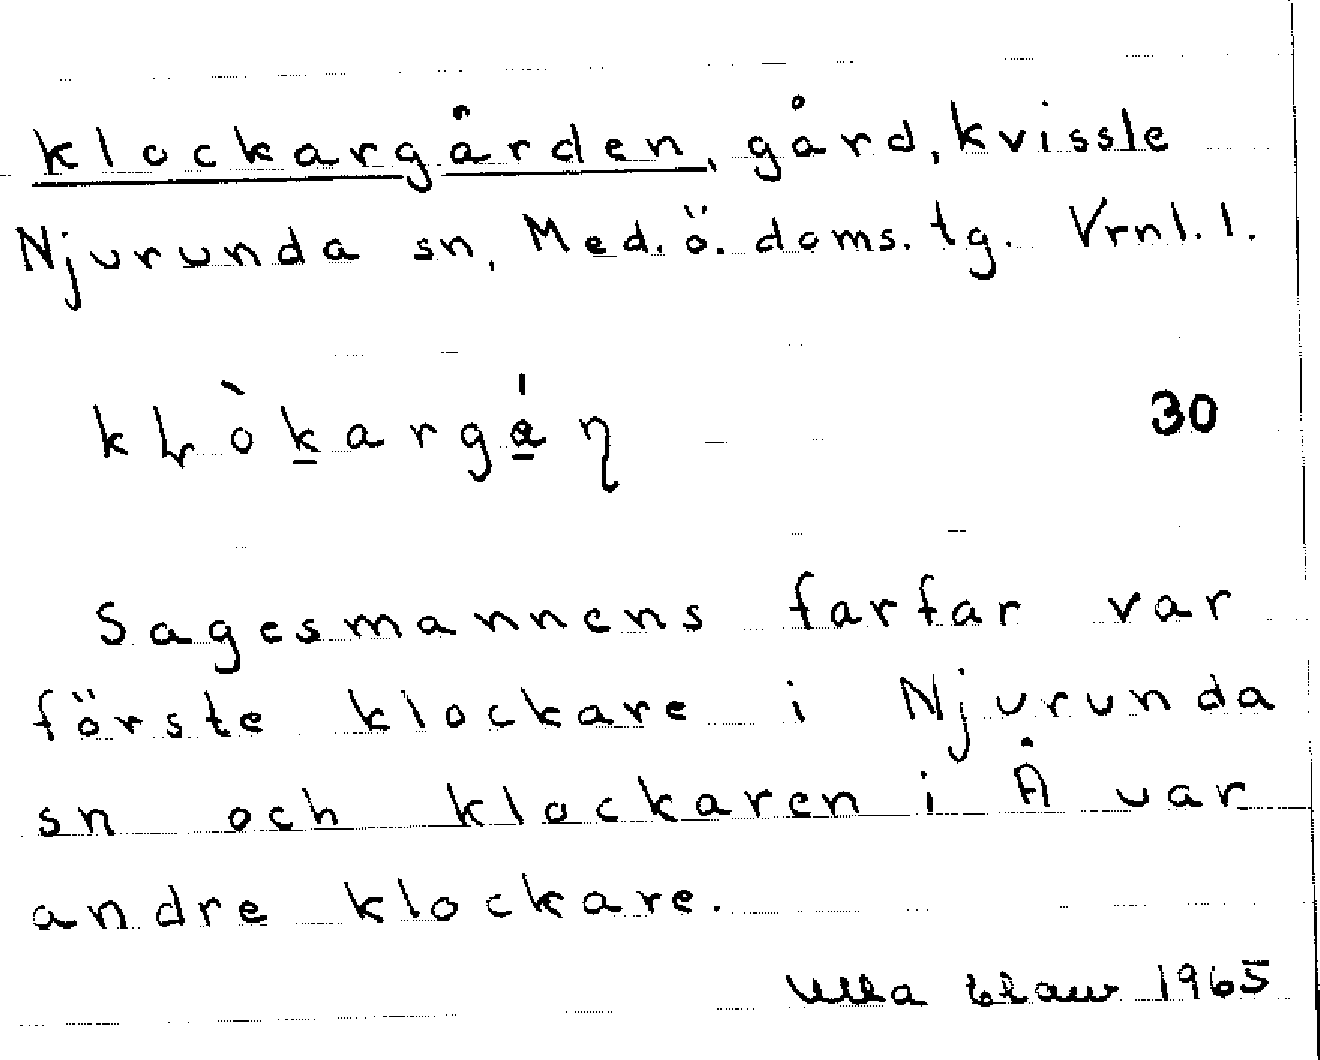 klockargården, gård, kvissle
Njurunda sn, Med. ö. doms. tg. Vrnl. l.
30
Sagesmannens farfar var
förste klockare i Njurunda
sn och klockaren i Å var
andre klockare.
Ulla 1965